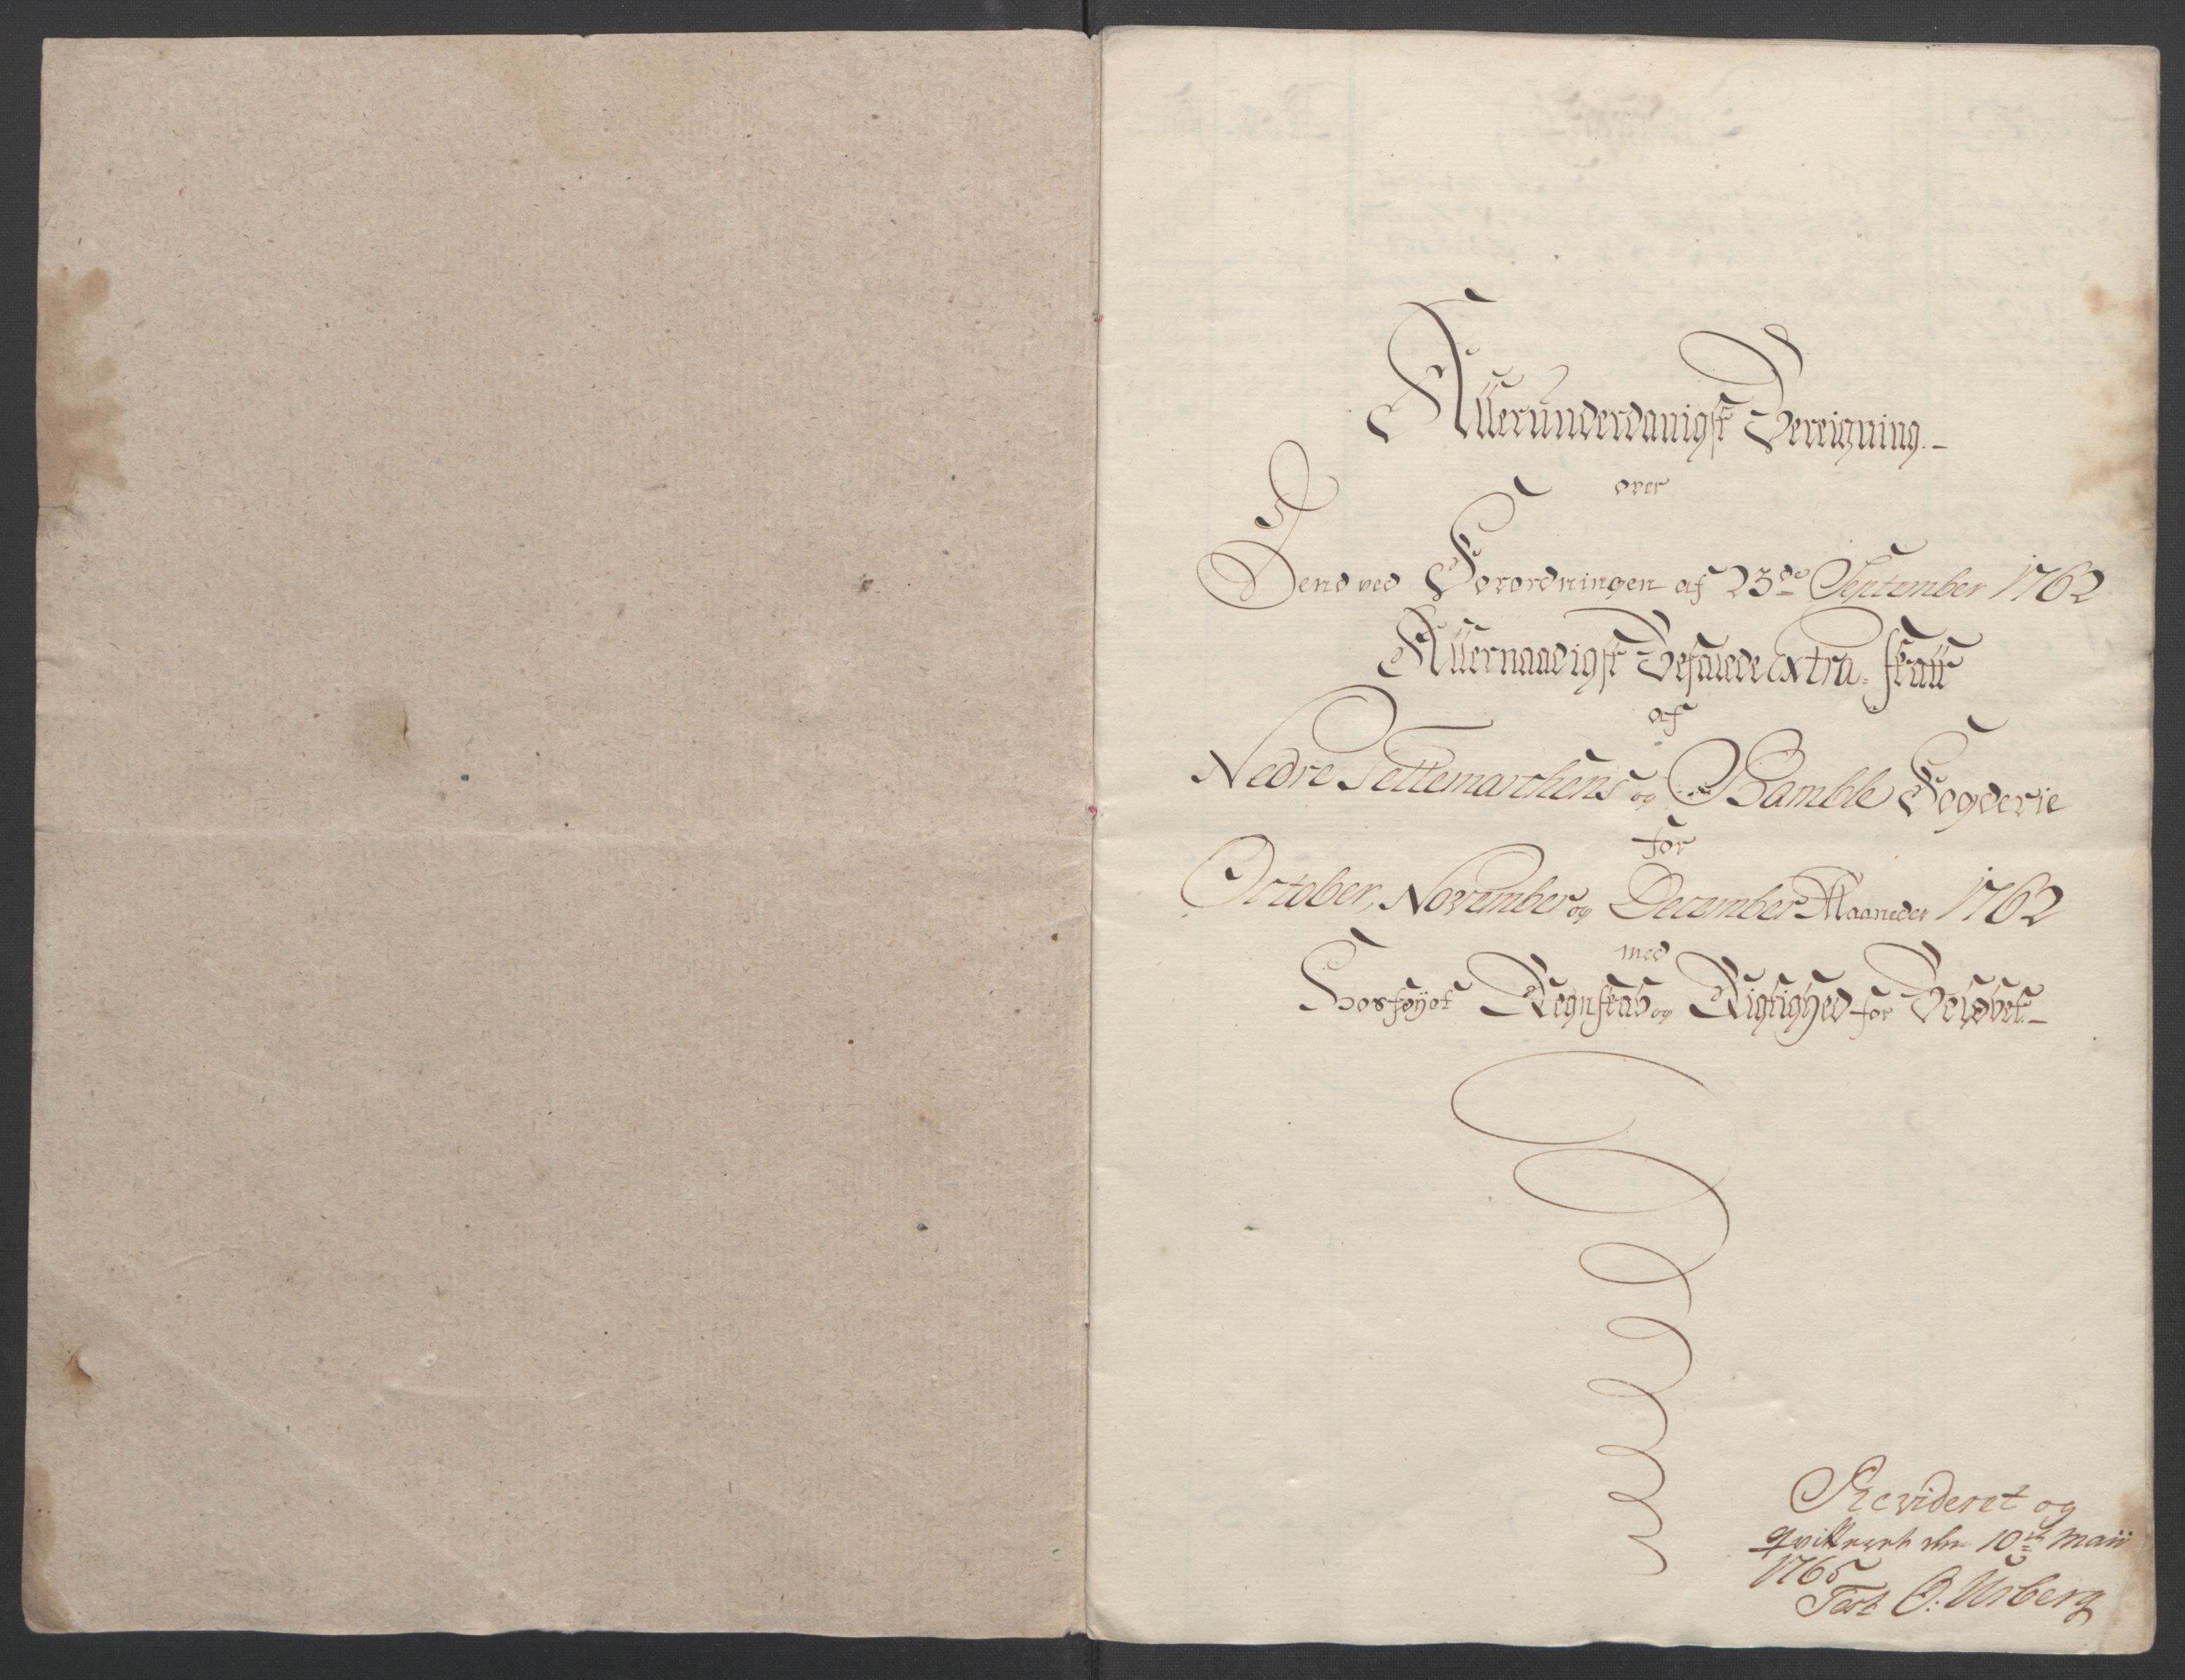 Allerunderdanigst Bereigning.-
over
Dend ved Forordningen af 23de September 1762
Allernaadigst Befalede Extra-Skatt
af
Nedre Tellemarchens og Bamble Fogderie
for
October, November og December Maaneder 1762
med
Hosføyet Regnskab og Rigtighed for Beløbet.-
Revideret og
qvitteret den 10de Maii
1765
Test O: Urberg